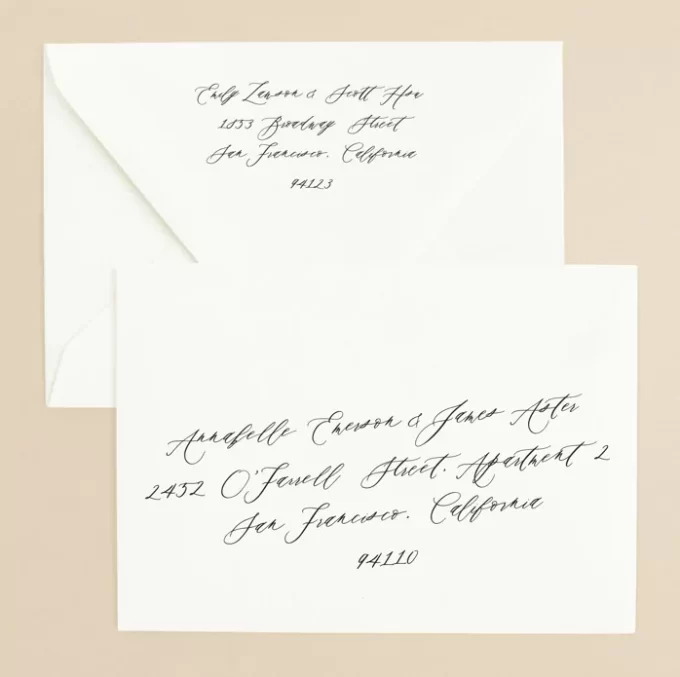 Emily & Scott
1853 Broadway Street
San Francisco, California
94123
Annabelle Emerson & James Aster
2452 O'Farrell Street, Apartment 2
San Francisco, California
94110